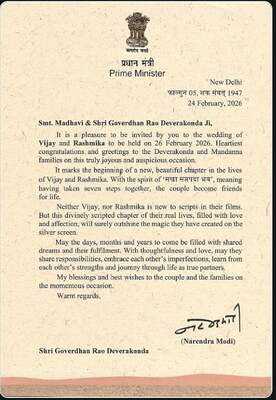 प्रधान मंत्री
Prime Minister
New Delhi
फाल्गुन 05, शक संवत् 1947
24 February, 2026
Smt. Madhavi & Shri Goverdhan Rao Deverakonda Ji,
It is a pleasure to be invited by you to the wedding of
Vijay and Rashmika to be held on 26 February 2026. Heartiest
congratulations and greetings to the Deverakonda and Mandanna
families on this truly joyous and auspicious occasion.
It marks the beginning of a new, beautiful chapter in the lives
of Vijay and Rashmika. With the spirit of "सखा सप्तपदा भव", meaning
having taken seven steps together, the couple become friends
for life.
Neither Vijay, nor Rashmika is new to scripts in their films.
But this divinely scripted chapter of their real lives, filled with love
and affection, will surely outshine the magic they have created on the
silver screen.
May the days, months and years to come be filled with shared
dreams and their fulfilment. With thoughtfulness and love, may they
share responsibilities, embrace each other's imperfections, learn from
each other's strengths and journey through life as true partners.
My blessings and best wishes to the couple and the families on
the momentous occasion.
Warm regards,
(Narendra Modi)
Shri Goverdhan Rao Deverakonda